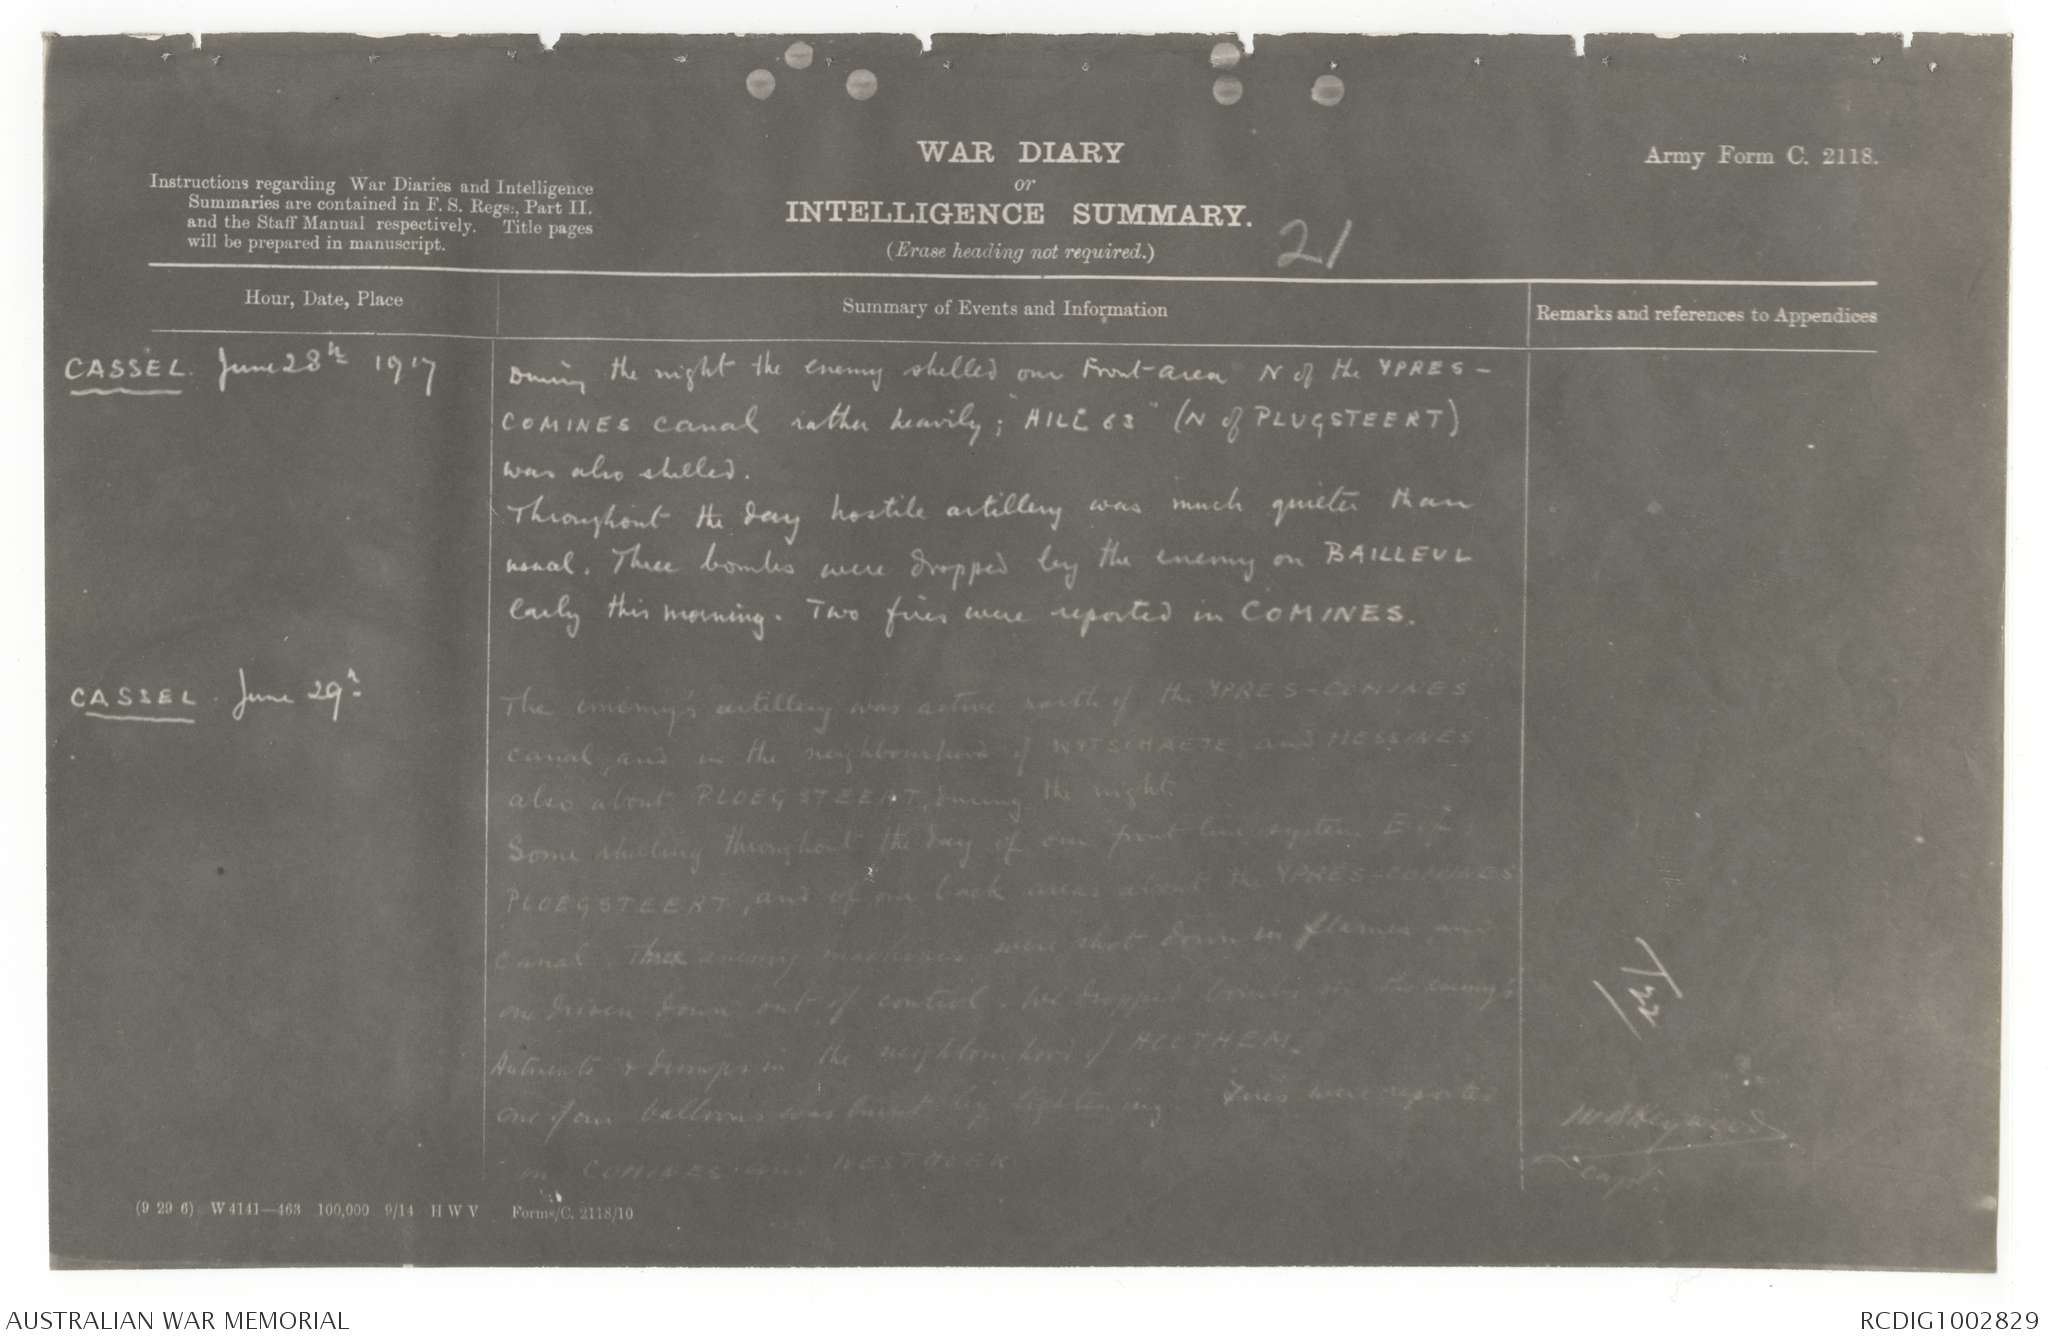 WAR DIARY
or
INTELLIGENCE SUMMARY.
(Erase heading not required.)
21
Army Form C. 2118.
Instructions regarding War Diaries and Intelligence
Summaries are contained in F. S. Regs:, Part II.
and the Staff Manual respectively. Title pages
will be prepared in manuscript.
Hour, Date, Place
Summary of Events and Information
Remarks and references to Appendices
CASSEL. June 28th 1917
During the night the enemy shelled our Front-area N of the YPRES -
COMINES canal rather heavily; "HILL 63" (N of PLUGSTEERT)
was also shelled.
Throughout the day hostile artillery was much quieter than
usual. Three bombs were dropped by the enemy on BAILLEUL
early this morning. Two fires were reported in COMINES.
CASSEL. June 29th
The enemy's artillery was active north of the YPRES-COMINES
canal, and in the neighbourhood of WYTSCHAETE and MESSINES
also about PLOEGSTEERT, during the night.
Some shelling throughout the day of our front line system E of
PLOEGSTEERT, and of our back areas about the YPRES-COMINES
canal. Three enemy machines were shot down in flames and
one driven down out of control. We dropped bombs on the enemy's
& dumps in the neighbourhood of
one of our balloons was burnt by lightening. Fires were reported
in COMINES and WESTHOEK
Capt.
(9 29 6) W 4141—463 100,000 9/14 H W V Forms/C. 2118/10
AUSTRALIAN WAR MEMORIAL
RCDIG1002829